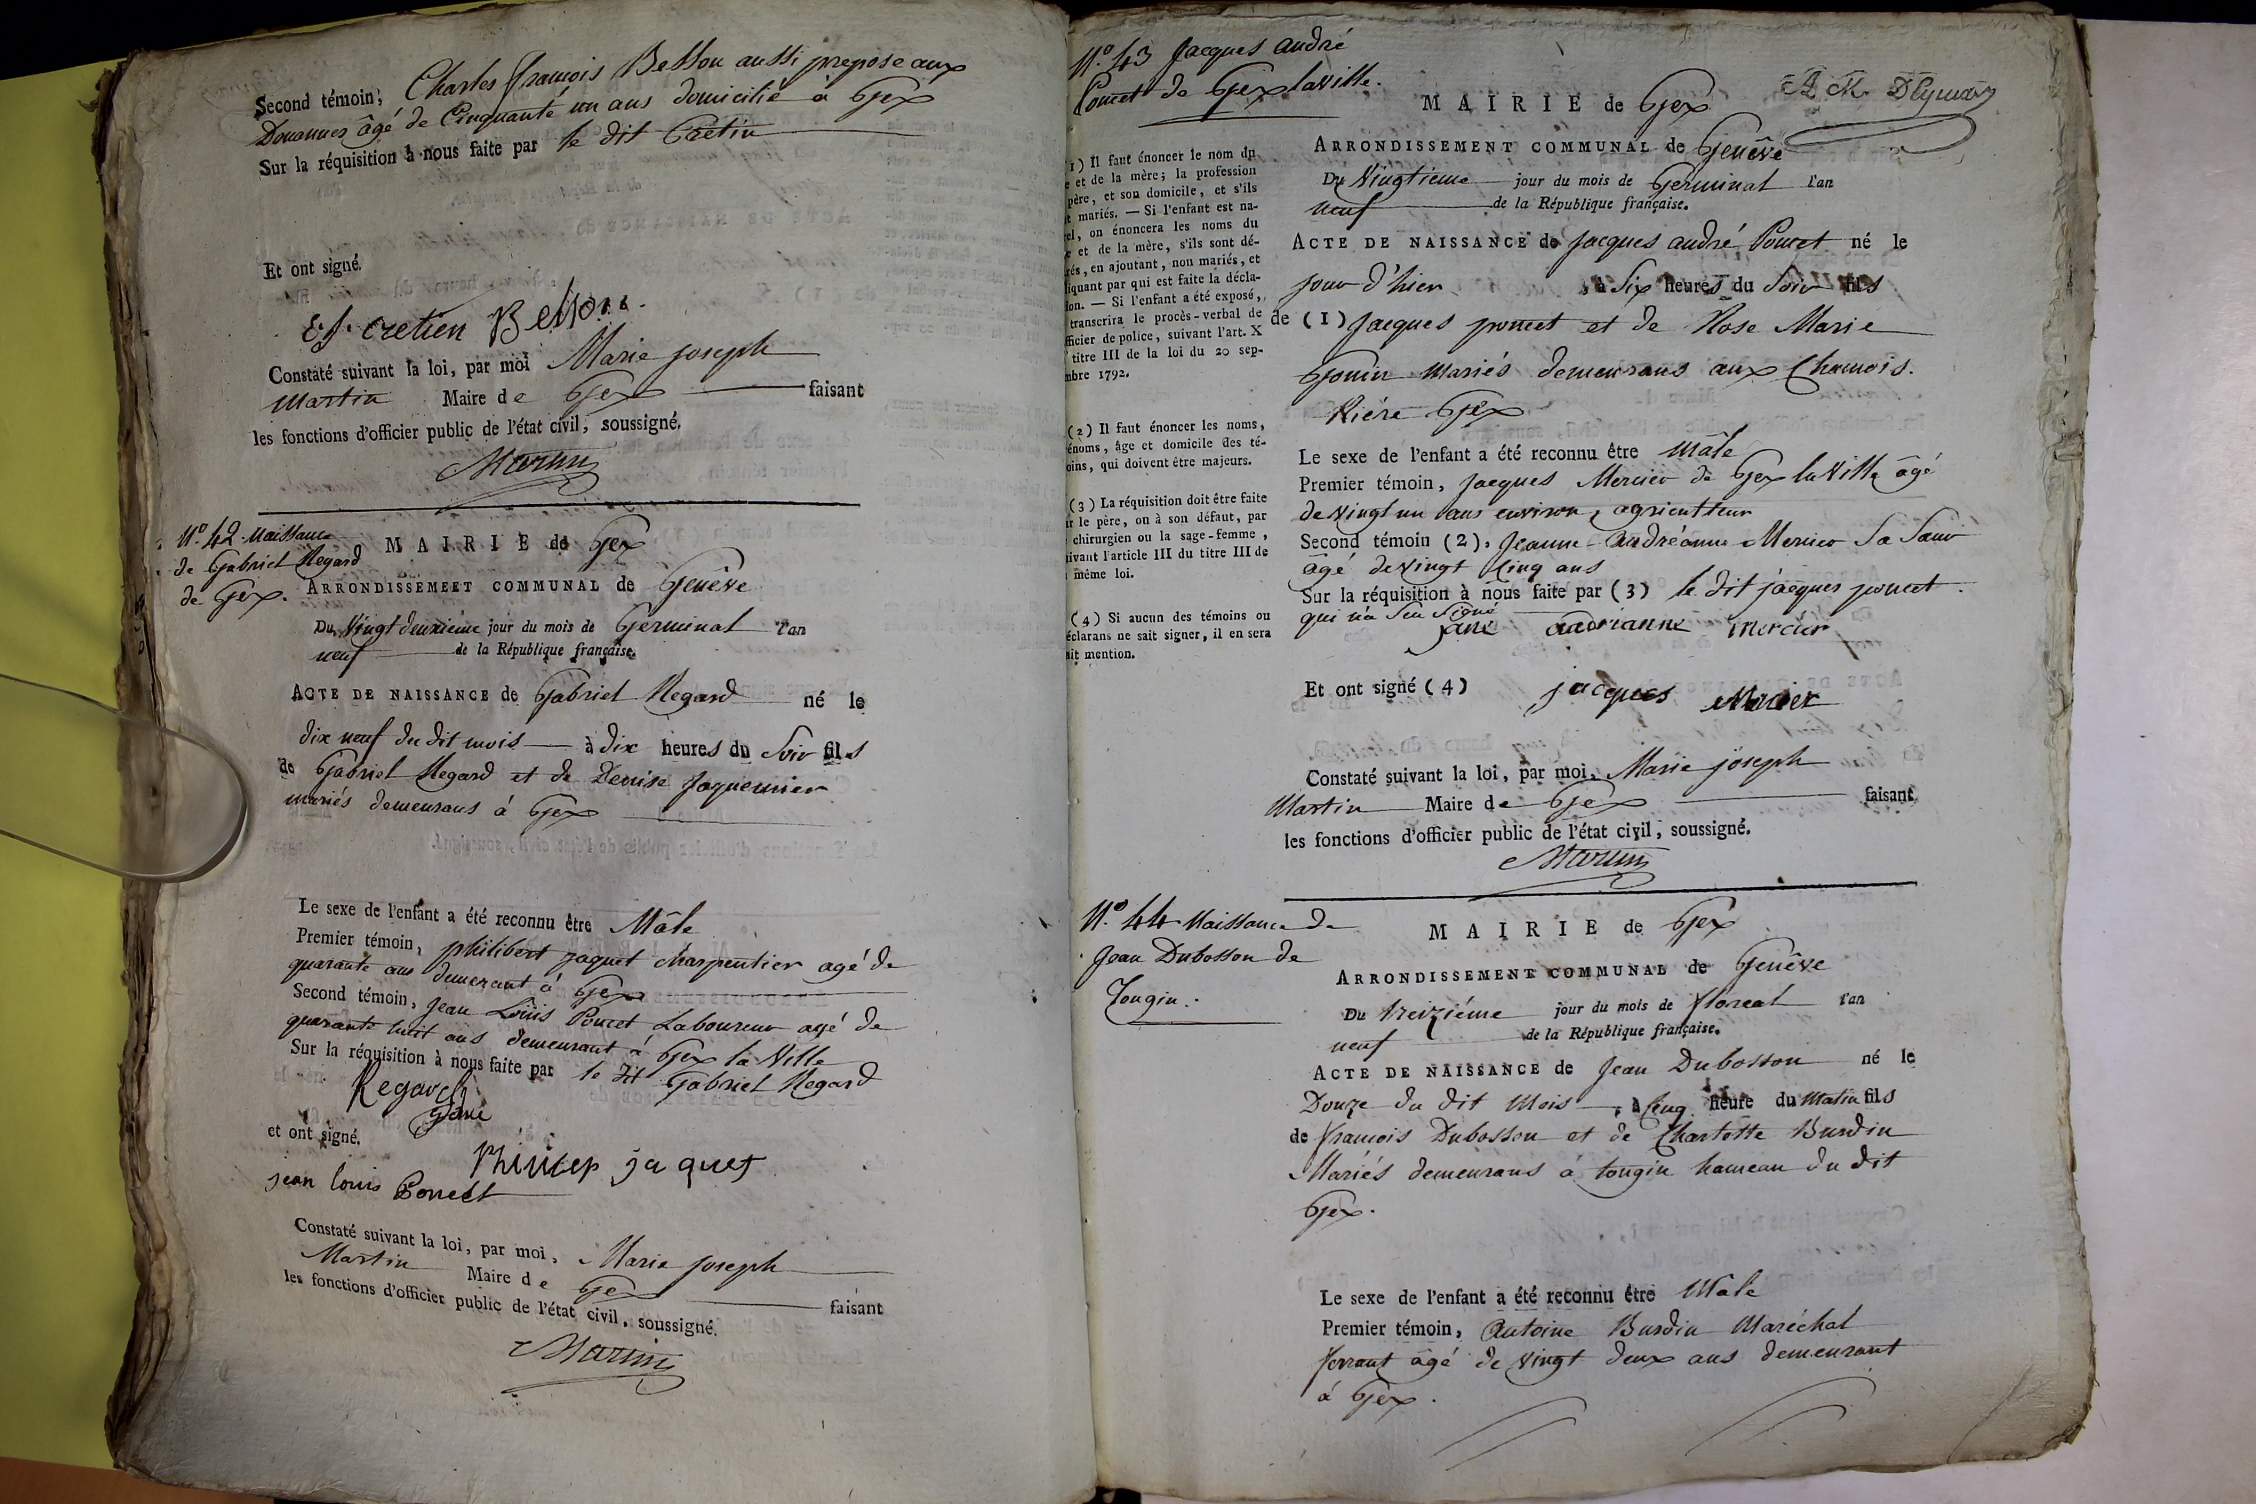 Second témoin, Charles François Besson aussi préposé aux
Douannes âgé de Cinquante un ans domicilié à Gex
Sur la réquisition à nous faite par le dit Crétin
Et ont signé.
cretien Besson
Constaté suivant la loi, par moi Marie joseph
Martin Maire de Gex faisant
les fonctions d'officier public de l'état civil, soussigné.
Martin
N.º 42 Naissance
de Gabriel Regard
de Gex.
MAIRIE de Gex
ARRONDISSEMEET COMMUNAL de Genêve
Du Vingt deuxième jour du mois de Germinal l'an
neuf de la République française.
ACTE DE NAISSANCE de Gabriel Regard né le
dix neuf du dit mois à dix heures du Soir fils
de Gabriel Regard et de Denise Jaquemier
mariés demeurans à Gex
Le sexe de l'enfant a été reconnu être Mâle
Premier témoin, philibert jaquet charpentier agé de
quarante ans demeurant à Gex
Second témoin, Jean Loüis Poncet Laboureur agé de
quarante huit ans demeurant à Gex la Ville
Sur la réquisition à nous faite par le dit Gabriel Regard
Regard
et ont signé.
jaques
jean louis Poncet
Constaté suivant la loi, par moi, Marie joseph
Martin Maire de Gex faisant
les fonctions d'officier public de l'état civil, soussigné.
Martin
N.º 43 Jacques andré
Poncet de Gex laville.
1) Il faut énoncer le nom du
e et de la mère; la profession
père, et son domicile, et s'ils
t mariés. — Si l'enfant est na-
rel, on énoncera les noms du
e et de la mère, s'ils sont dé-
rés, en ajoutant, non mariés, et
iquant par qui est faite la décla-
ion. — Si l'enfant a été exposé,
transcrira le procès-verbal de
fficier de police, suivant l'art. X
titre III de la loi du 20 sep-
mbre 1792.
(2) Il faut énoncer les noms,
rénoms, âge et domicile des té-
oins, qui doivent être majeurs.
(3) La réquisition doit être faite
ar le père, on à son défaut, par
chirurgien ou la sage-femme,
ivant l'article III du titre III de
même loi.
(4) Si aucun des témoins ou
éclarans ne sait signer, il en sera
ait mention.
MAIRIE de Gex
ARRONDISSEMENT COMMUNAL de Genêve
Du Vingtieme jour du mois de Germinal l'an
neuf de la République française.
ACTE DE NAISSANCE de Jacques andré Poncet né le
jour d'hier, à Six heures du Soir fils
de (1) Jacques poncet et de Rose Marie
Gonin mariés demeurans aux Chamois.
Riére Gex
Le sexe de l'enfant a été reconnu être mâle
Premier témoin, Jacques Mercier de Gex la Ville âgé
de vingt un ans environ, agriculteur
Second témoin (2), Jeanne Andréanne Mercier Sa Sœur
âgé de vingt Cinq ans
Sur la réquisition à nous faite par (3) le dit jacques poncet.
qui n'a Seu Signé
jane andrianne mercier
Et ont signé (4) jacques Mercier
Constaté suivant la loi, par moi, Marie joseph
Martin Maire de Gex faisant
les fonctions d'officier public de l'état civil, soussigné.
Martin
N.º 44 Naissance de
Jean Dubosson de
Tougin.
MAIRIE de Gex
ARRONDISSEMENT COMMUNAL de Genêve
Du treizième jour du mois de floreal l'an
neuf de la République française.
ACTE DE NAISSANCE de Jean Dubosson né le
Douze du dit Mois, à Cinq heure du Matin fils
de françois Dubosson et de Charlotte Burdin
Mariés demeurans à tougin hameau du dit
Gex.
Le sexe de l'enfant a été reconnu être Mâle
Premier témoin, Antoine Burdin Maréchal
ferrant âgé de vingt deux ans demeurant
à Gex.